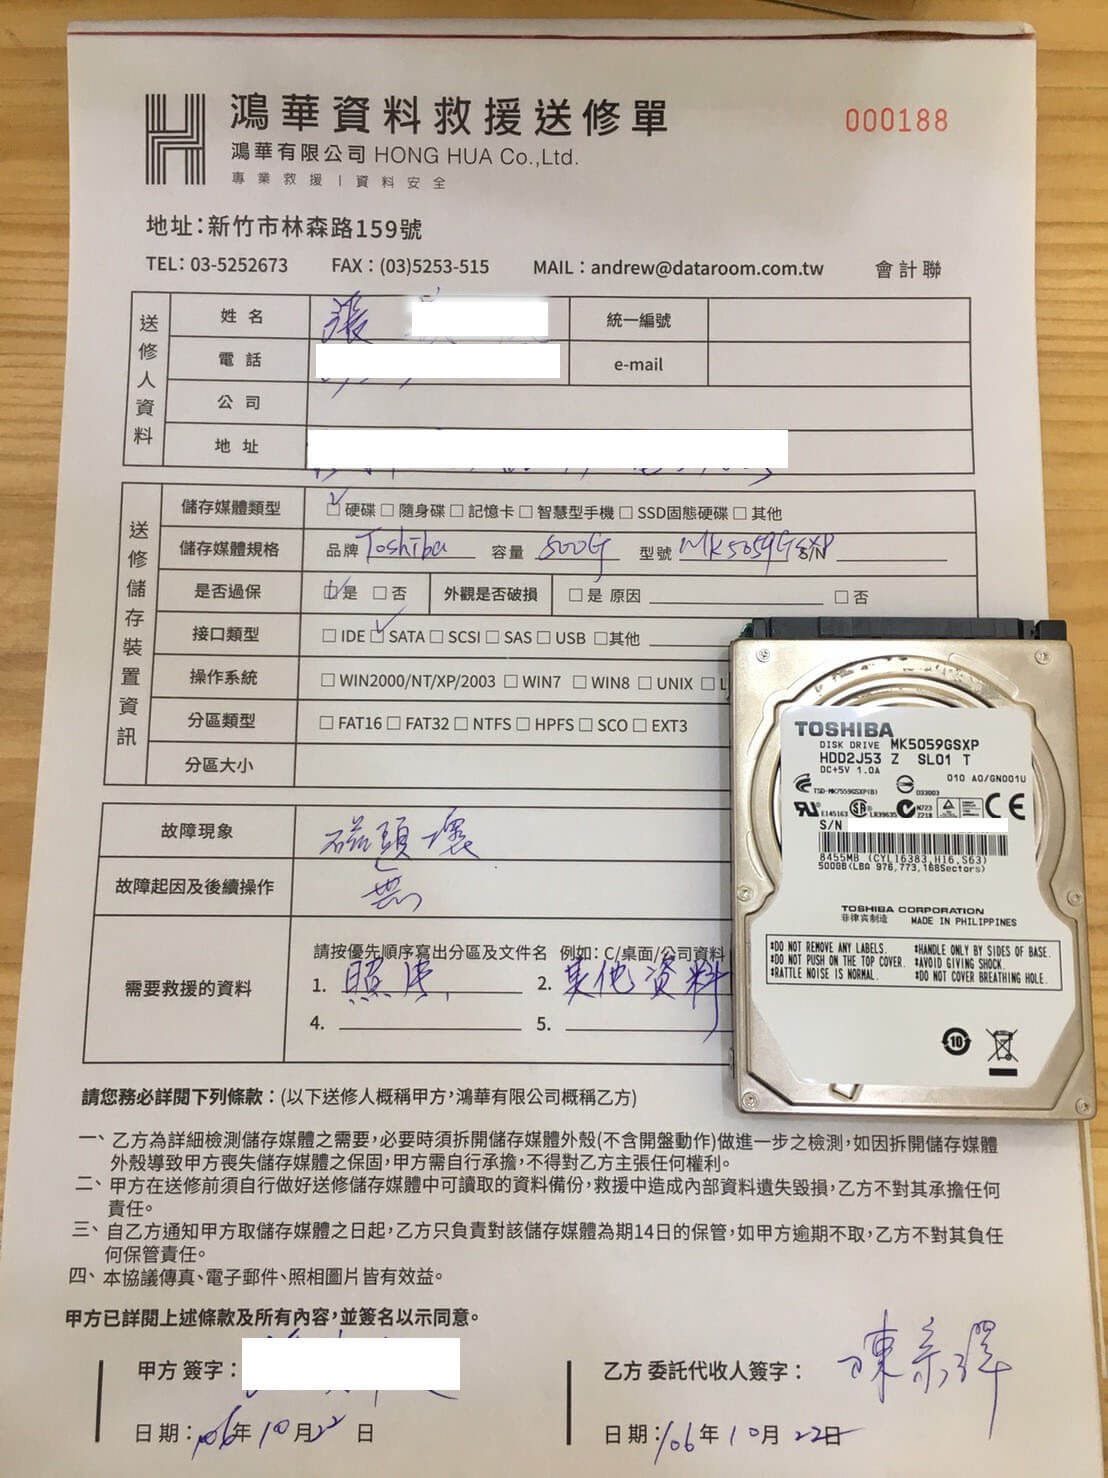 鴻華資料救援送修單
000188
鴻華有限公司 HONG HUA Co.,Ltd.
專業救援 | 資料安全
地址:新竹市林森路159號
TEL: 03-5252673 FAX:(03)5253-515 MAIL:andrew@dataroom.com.tw 會計聯
送修人資料
姓名 張 統一編號
電話 e-mail
公司
地址
送修儲存裝置資訊
儲存媒體類型 ☑硬碟 □隨身碟 □記憶卡 □智慧型手機 □SSD固態硬碟 □其他
儲存媒體規格 品牌 Toshiba 容量 500G 型號 MK5059GSXP S/N
是否過保 ☑是 □否 外觀是否破損 □是 原因 □否
接口類型 □IDE ☑SATA □SCSI □SAS □USB □其他
操作系統 □WIN2000/NT/XP/2003 □WIN7 □WIN8 □UNIX □L
分區類型 □FAT16 □FAT32 □NTFS □HPFS □SCO □EXT3
分區大小
故障現象 磁頭壞
故障起因及後續操作 無
需要救援的資料
請按優先順序寫出分區及文件名 例如:C/桌面/公司資料
1. 照片 2. 其他資料
4. 5.
TOSHIBA
DISK DRIVE MK5059GSXP
HDD2J53 Z SL01 T
DC+5V 1.0A
010 A0/GN001U
TSD-MK7559GSXP(B) D33003
E145163 LR39635 N723 Z218
S/N
8455MB (CYL16383,H16,S63)
500GB(LBA 976,773,168Sectors)
TOSHIBA CORPORATION
菲律宾制造 MADE IN PHILIPPINES
*DO NOT REMOVE ANY LABELS. *HANDLE ONLY BY SIDES OF BASE.
*DO NOT PUSH ON THE TOP COVER. *AVOID GIVING SHOCK.
*RATTLE NOISE IS NORMAL. *DO NOT COVER BREATHING HOLE.
10
請您務必詳閱下列條款:(以下送修人概稱甲方,鴻華有限公司概稱乙方)
一、乙方為詳細檢測儲存媒體之需要,必要時須拆開儲存媒體外殼(不含開盤動作)做進一步之檢測,如因拆開儲存媒體
外殼導致甲方喪失儲存媒體之保固,甲方需自行承擔,不得對乙方主張任何權利。
二、甲方在送修前須自行做好送修儲存媒體中可讀取的資料備份,救援中造成內部資料遺失毀損,乙方不對其承擔任何
責任。
三、自乙方通知甲方取儲存媒體之日起,乙方只負責對該儲存媒體為期14日的保管,如甲方逾期不取,乙方不對其負任
何保管責任。
四、本協議傳真、電子郵件、照相圖片皆有效益。
甲方已詳閱上述條款及所有內容,並簽名以示同意。
甲方 簽字: 乙方 委託代收人簽字:
日期:106年10月22日 日期:106年10月22日